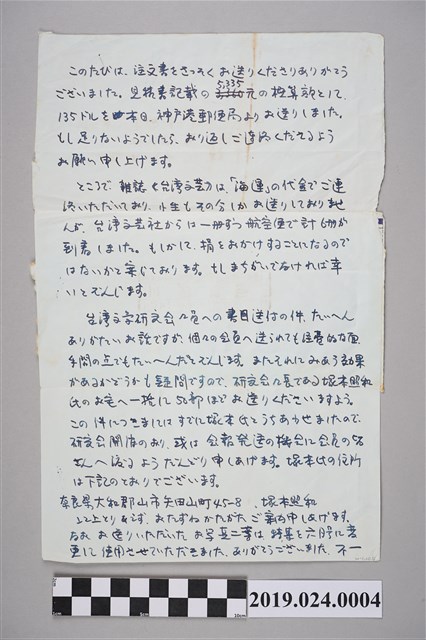 このたびは、注文書をさっそくお送りくださりありがとう
ございました。見積書記載の5,335元の概算額として、
135ドルを本日、神戸港郵便局よりお送りしました。
もし足りないようでしたら、おり返しご連絡くださるよう
お願い申し上げます。
ところで、雑誌《台湾文芸》は、「海運」の代金でご連
絡いただいており、小生もその分しかお送りしておりませ
んが、台湾文芸社からは一冊ずつ航空便で計6冊が
到着しました。もしかして、損をおかけすることになるので
はないかと案じております。もしまちがいでなければ幸
いとぞんじます。
台湾文学研究会々員への書目送付の件、たいへん
ありがたいお話ですが、個々の会員へ送られても経費的な面
手間の点でもたいへんだとぞんじます。またそれにみあう効果
があるかどうかも疑問ですので、研究会々長である塚本照和
氏のお宅へ一括に50部ほどお送りくださいますよう。
この件につきましてはすでに塚本氏とうちあわせましたので、
研究会開催のおり、或は会報発送の機会に会員の皆
さんへ渡るようだんどり申しあげます。塚本氏の住所
は下記のとおりでございます。
奈良県大和郡山市矢田山町45-8、塚本照和
以上とりあえず、おたずねかたがたご案内申しあげます。
なお、お送りいただいたお写真二葉は
使用させていただきました。ありがとうございました。不一
2019.024.0004